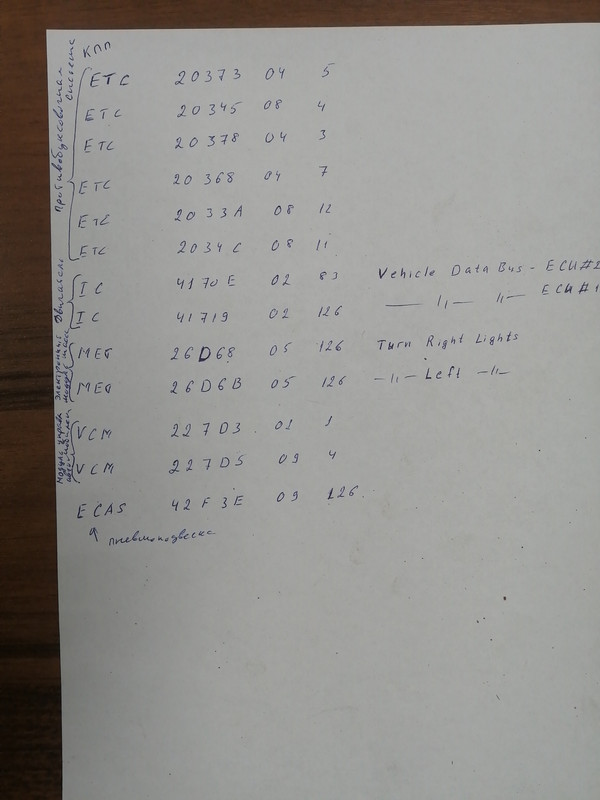 КПП
Противобуксовочная система
ETC 20373 04 5
ETC 20345 08 4
ETC 20378 04 3
ETC 20368 04 7
ETC 2033A 08 12
ETC 2034C 08 11
Двигатель
IC 4170E 02 83 Vehicle Data Bus - ECU#2
IC 41719 02 126 — 〃 — 〃 — ECU#1
Электронный модуль
MEG 26D68 05 126 Turn Right Lights
MEG 26D6B 05 126 — 〃 — Left — 〃 —
Модуль
VCM 227D3 01 1
VCM 227D5 09 4
ECAS 42F3E 09 126
↑ пневмоподвеска